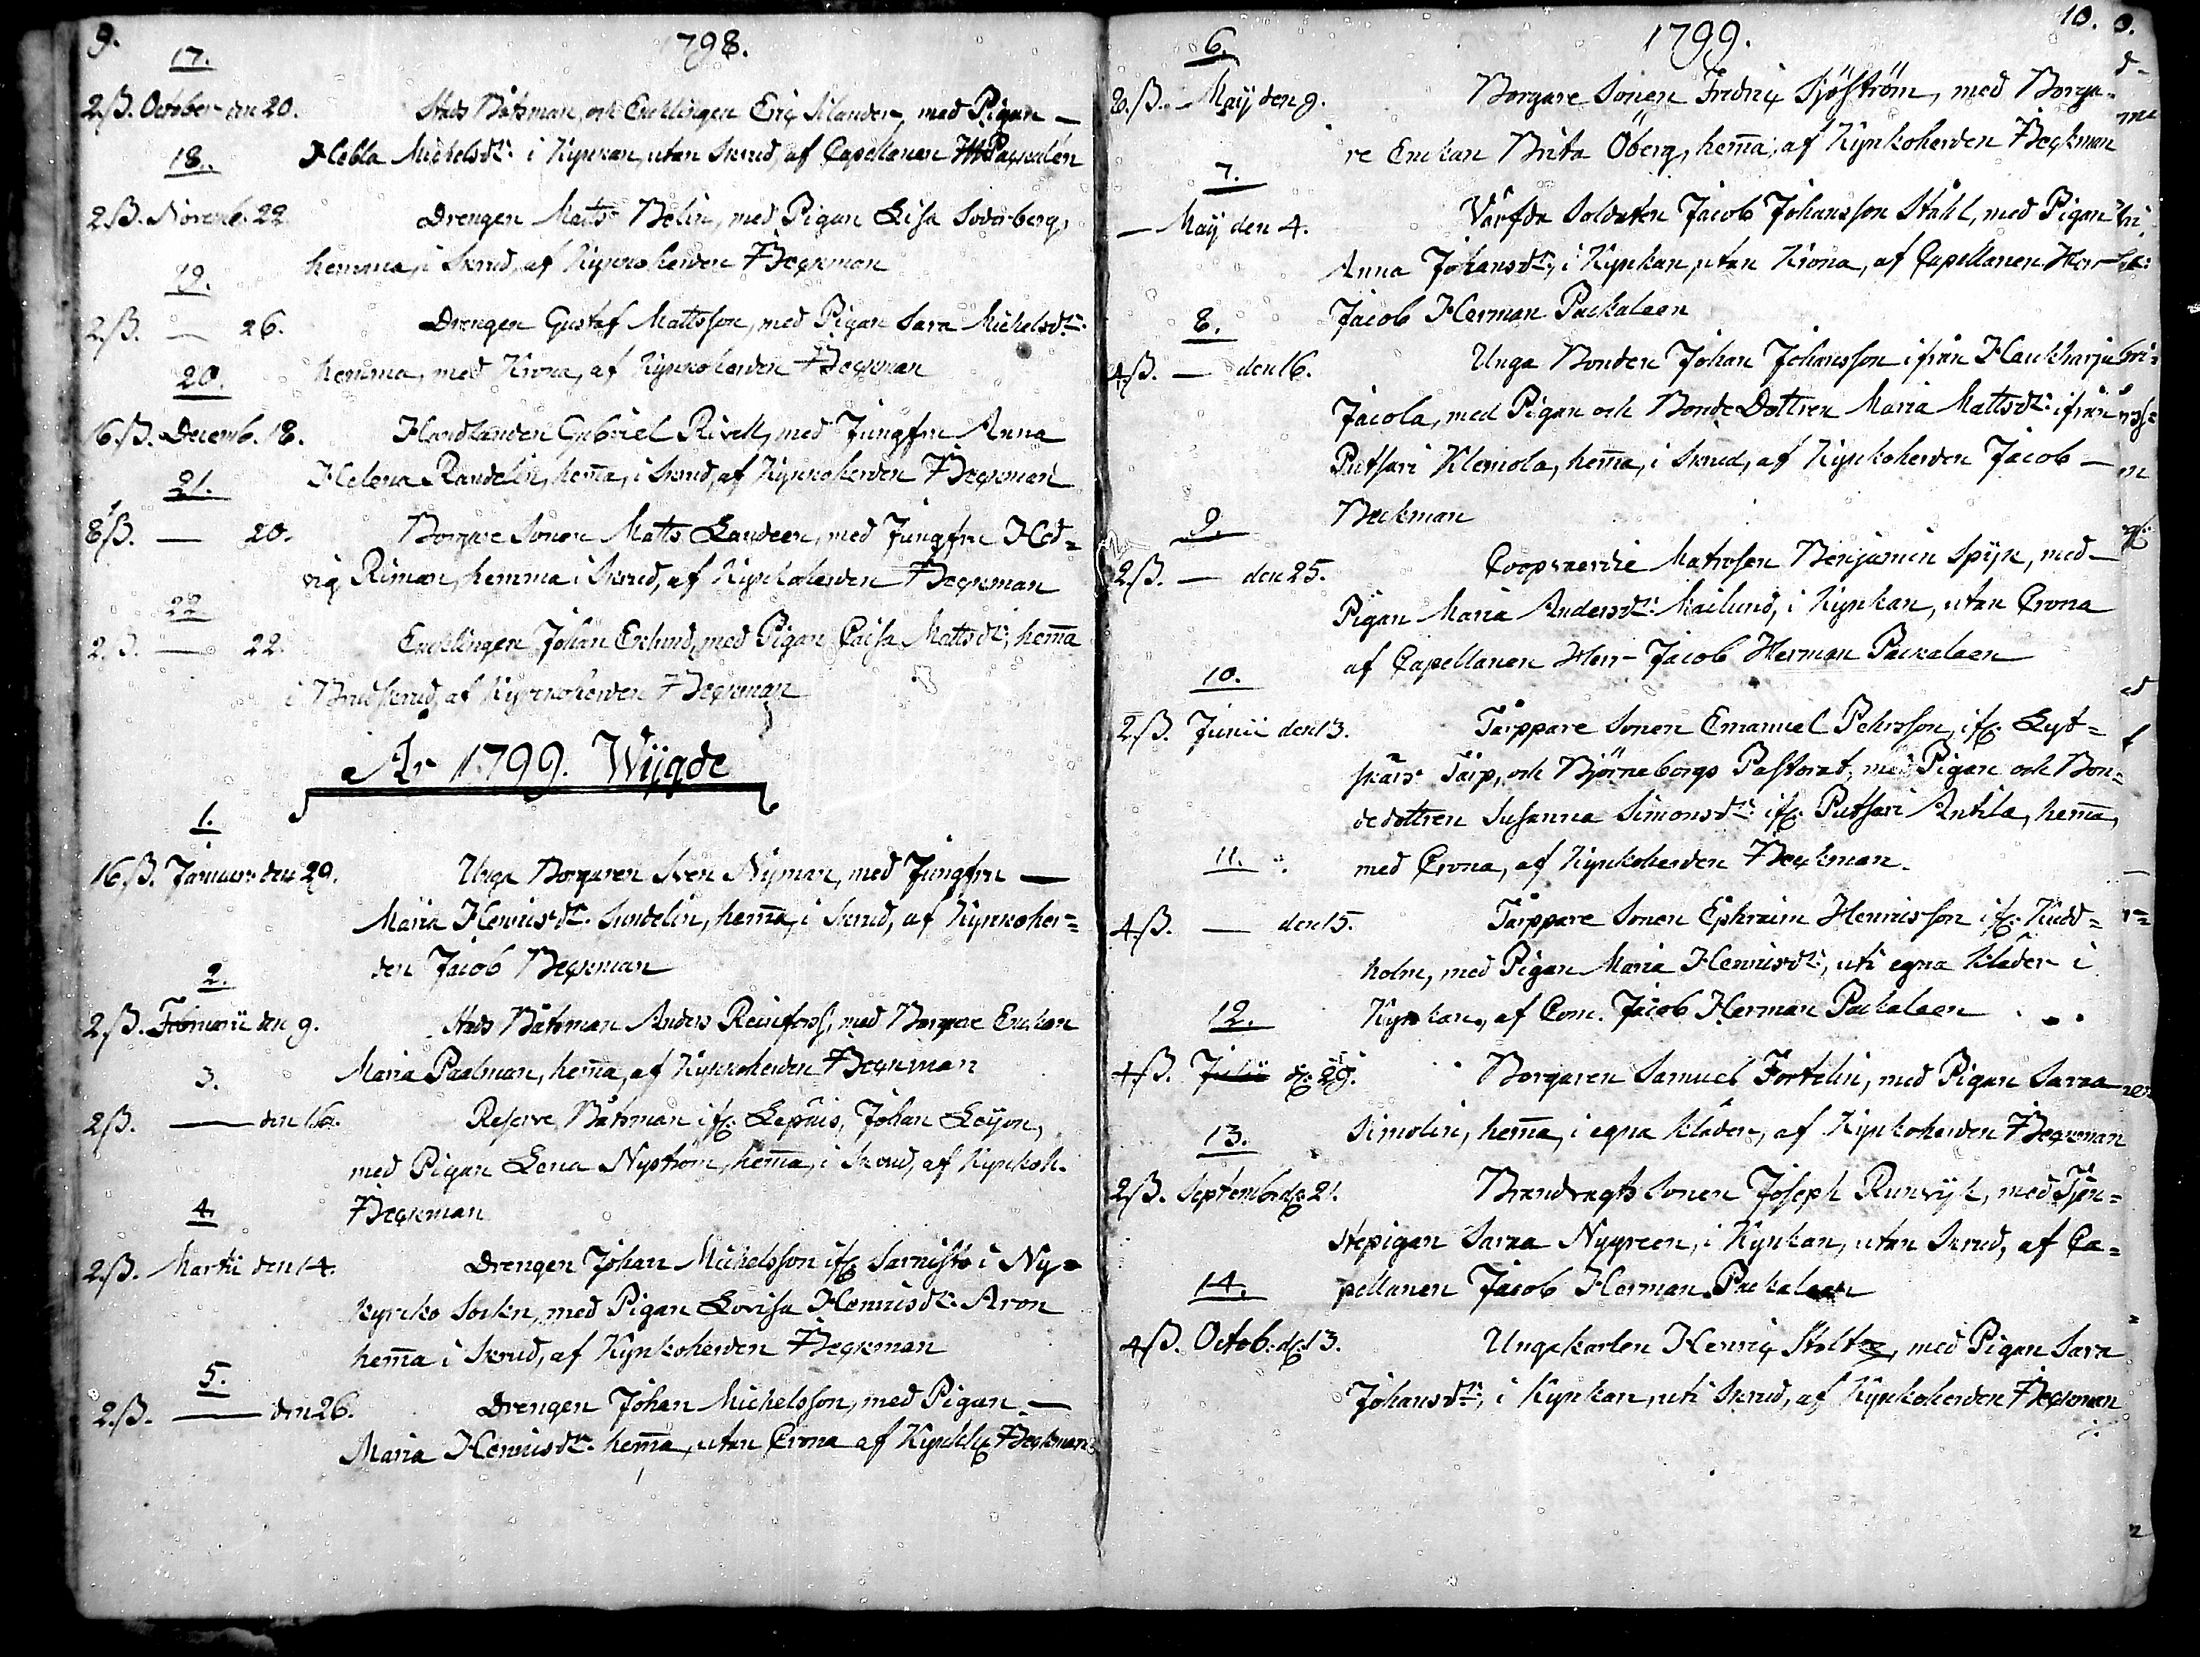 9.
1798.
17.
2ß. October den 20. Stads Båtsman, och Encklingen Eriç Silander, med Pigan —
Hebla Michelsdr. i Kyrckan, utan Skrud, af Capellanen Packalén
18.
2ß. Novemb. 22. Drengen Matts Belin, med Pigan Lisa Söderberg,
hemma, i Skrud, af Kyrckoherden Beckman
19.
2ß. — 26. Drengen Gustaf Mattsson, med Pigan Sara Michelsdr.
hemma, med Krona, af Kyrckoherden Beckman
20.
16ß. Decemb. 18. Handlanden Gabriel Rivell, med Jungfru Anna
Helena Randelin, hem̄a, i Skrud, af Kyrckoherden Beckman
21.
8ß. — 20. Borgare Sonen Matts Landeen, med Jungfru Hed=
vig Riman, hemma i Skrud, af Kyrckoherden Beckman
22.
2ß. — 22. Encklingen Johan Eklund, med Pigan Caisa Mattsdr. hem̄a
i Brudskrud, af Kyrckoherden Beckman
År 1799. Wijgde
1.
16ß. Januarii den 29. Unga Borgaren Sven Nyman, med Jungfru —
Maria Henricsdr. Sundelin, hem̄a, i Skrud, af Kyrckoher=
den Jacob Beckman
2.
2ß. Februarii den 9. Stads Båtsman Anders Reinforss, med Borgare Enckan
Maria Paalman, hem̄a, af Kyrckoherden Beckman
3.
2ß. — den 16. Reserve Båtsman ifr. Lepäis, Johan Leijon,
med Pigan Lena Nyström, hem̄a, i Skrud, af Kyrckoh.
Beckman
4.
2ß. Martii den 14. Drengen Johan Michelsson ifr. Sarnisto i Ny=
kyrcko Sockn, med Pigan Lovisa Henricsdr. Aron
hem̄a i Skrud, af Kyrckoherden Beckman
5.
2ß. — den 26. Drengen Johan Michelsson, med Pigan —
Maria Henricsdr. hem̄a, utan Crona af Kyrckh. Beckman
1799.
10.
6.
2ß. — Maij den 9. Borgare Sonen Fredriç Sjöström, med Borga=
re Enckan Brita Öberg, hem̄a, af Kyrckoherden Beckman
7.
— Maij den 4. Värfda Soldaten Jacob Johansson Ståhl, med Pigan
Anna Johansdr., i Kyrckan, utan Krona, af Capellanen Herr
Jacob Herman Packaleen
8.
4ß. — den 16. Unga Bonden Johan Johansson ifrån Haukharju
Jacola, med Pigan och Bonde Dottren Maria Mattsdr. ifrån
Putsari Klemola, hem̄a, i Skrud, af Kyrckoherden Jacob —
Beckman
9.
2ß. — den 25. Coopvaerdie Matrosen Benjamin Spijk, med
Pigan Maria Andersdr. Mailund, i Kyrckan, utan Crona
af Capellanen Herr Jacob Herman Packaleen
10.
2ß. Junii den 13. Tårppare Sonen Emanuel Pehrsson, ifr. Lyt=
skärs Tårp, och Björneborgs Pastorat, med Pigan och Bon=
dedottren Susanna Simonsdr. ifr. Putsari Antila, hem̄a,
med Crona, af Kyrckoherden Beckman.
11.
4ß. — den 15. Tårppare Sonen Ephraim Henricsson ifr. Kudd=
holm, med Pigan Maria Henricsdr., uti egna kläder i
Kyrckan, af Com. Jacob Herman Packaleen
12.
4ß. Julii d. 29. Borgaren Samuel Fortelin, med Pigan Saraa
Simolin, hem̄a, i egna kläder, af Kyrckoherden Beckman
13.
2ß. Septemb. d. 21. Brandvagts Sonen Joseph Runvijk, med Tjen=
stepigan Saraa Nygreen, i Kyrckan, utan Skrud, af Ca=
pellanen Jacob Herman Packaleen
14.
4ß. Octob. d. 13. Ungkarlen Henriç Stoltz, med Pigan Sara
Johansdr., i Kyrckan, uti Skrud, af Kyrckoherden Beckman